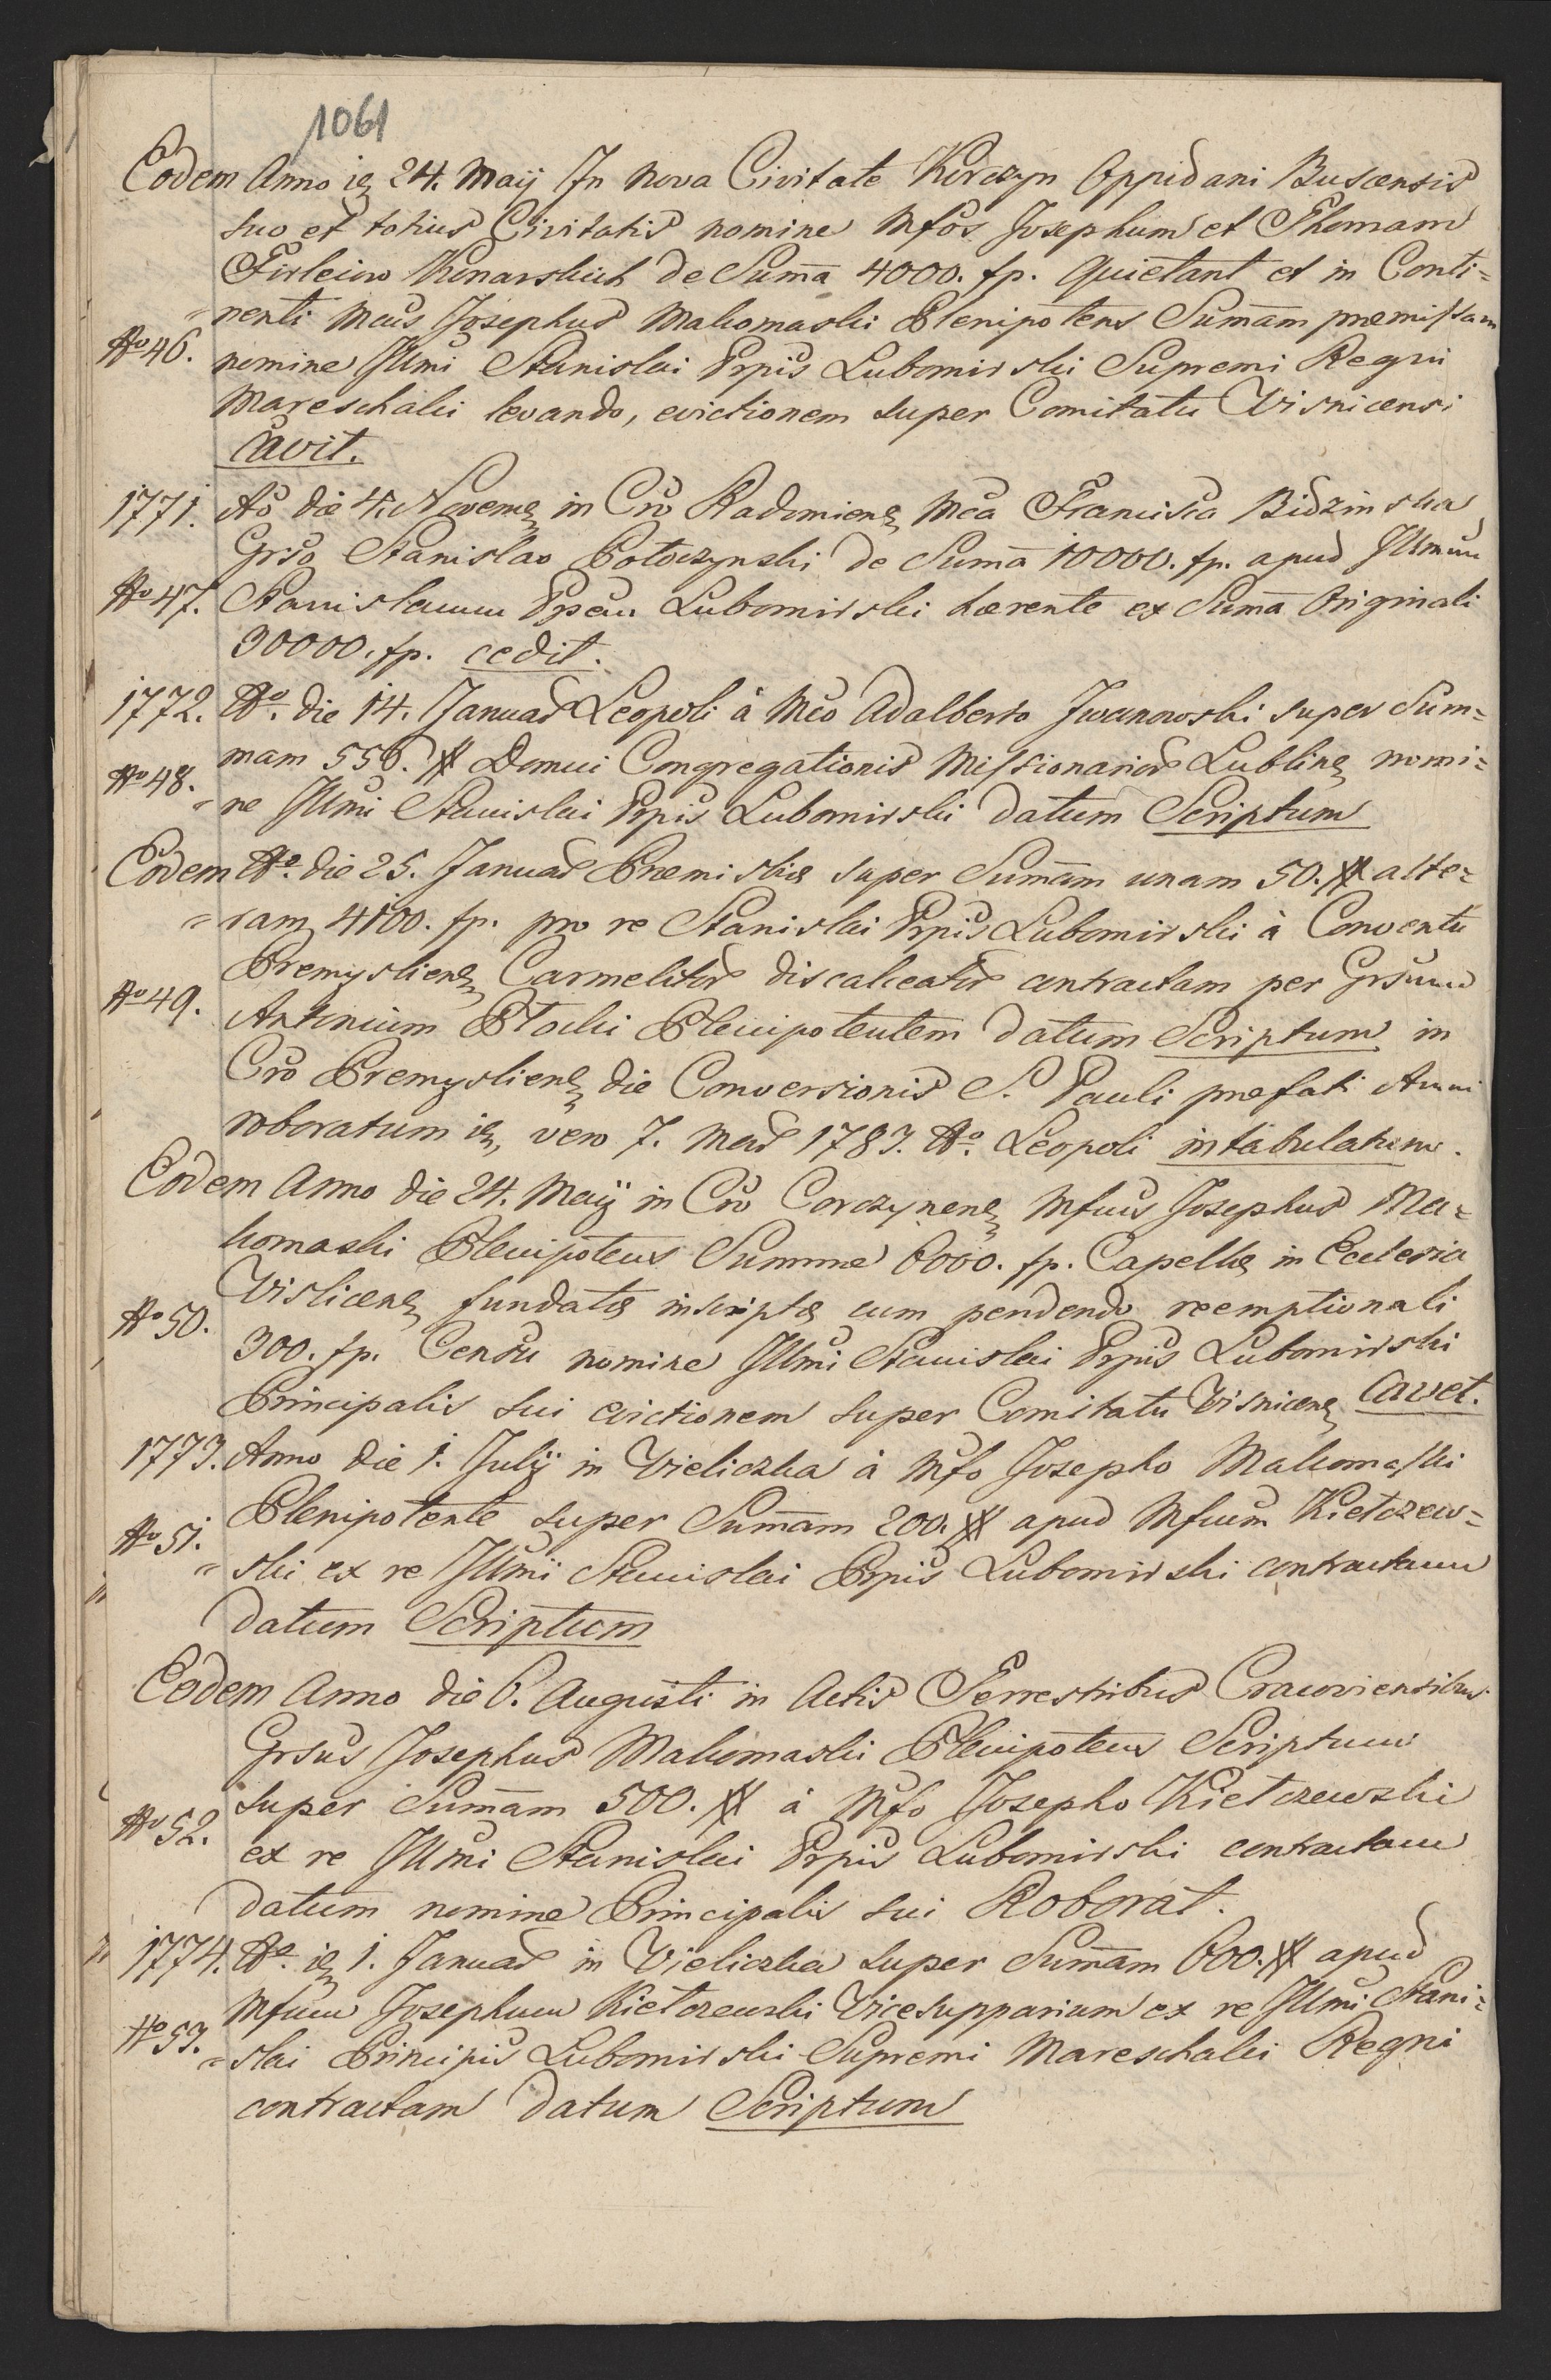 1061
Eodem Anno ie 24. Maij In Nova Civitate Korczyn Oppidani Buscensis
suo et totius Civitatis nomine Mfos Josephum et Thomam
Firleiow Konarskich de Suma 4000. fp. quietant et in Conti=
=nenti Mcus Josephus Makomaski Plenipotens Sumam præmissam
No 46.
nomine Illmi Stanislai Prpis Lubomirski Supremi Regni
Mareschalci levando, evictionem super Comitatu Visnicensi
Cavit.
1771. Ao die 4. Novemb in Cro Radomien Mca Francisca Bidzinska
Grso Stanislao Potoczynski de Suma 10000. fp. apud Illmum
No 47. Stanislaum Ppem Lubomirski hærente ex Suma Originali
30000. fp. cedit.
1772. Ao. die 14. Januar Leopoli à Mco Adalberto Iwanowski super Sum=
mam 556. # Domui Congregationis Missionarior Lublin nomi=
No 48.
=ne Illmi Stanislai Prpis Lubomirski datum Scriptum
Eodem Ao. die 25. Januar Premisliæ super Sumam unam 50. # alte=
=ram 4100. fp. pro re Stanislai Prpis Lubomirski à Conventu
Premyslien Carmelitar discalceator contractam per Grsum
No 49.
Antonium Ptocki Plenipotentem datum Scriptum in
Cro Premyslien die Conversionis S. Pauli præfati Anni
roboratum ie, vero 7. Mar 1783. Ao. Leopoli intabulatum.
Eodem Anno die 24. Maij in Cro Corczynen Mfus Josephus Ma=
komaski Plenipotens Summæ 6000. fp. Capellæ in Ecclesia
Vislicen fundatæ inscriptæ cum pendendo reemptionali
No 50.
300. fp. Censu nomine Illmi Stanislai Prpis Lubomirski
Principalis sui evictionem super Comitatu Visnicen Cavet.
1773. Anno die 1. Julij in Vieliczka à Mfo Josepho Makomaski
Plenipotente super Sumam 200. # apud Mfum Kietczew=
No 51.
=ski ex re Illmi Stanislai Prpis Lubomirski contractam
datum Scriptum
Eodem Anno die 6. Augusti in Actis Terrestribus Cracoviensibus
Grsus Josephus Makomaski Plenipotens Scriptum
super Sumam 500. # à Mfo Josepho Kietczewski
No 52.
ex re Illmi Stanislai Prpis Lubomirski contractam
datum nomine Principalis sui Roborat.
1774. Ao. ie 1. Januar in Vieliczka super Sumam 600. # apud
Mfum Josephum Kietczewski Vicesupparium ex re Illmi Stani=
No 53.
=slai Principis Lubomirski Supremi Mareschalci Regni
contractam datum Scriptum